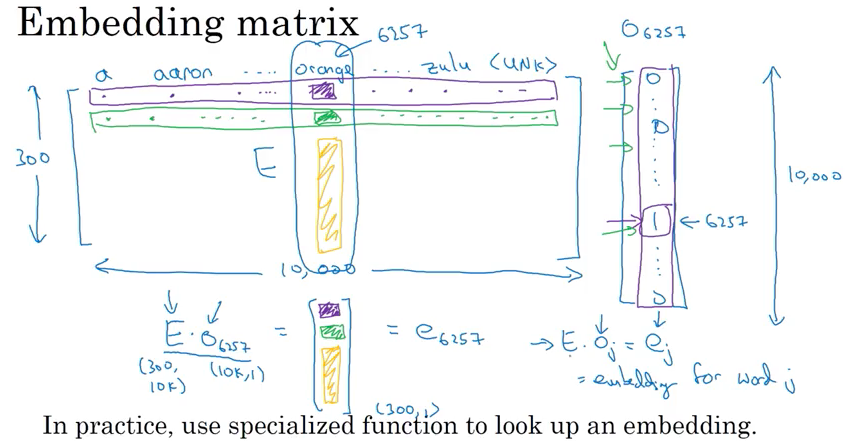 Embedding matrix
6257
O6257
a aaron ..... orange ..... zulu <UNK>
300
E
10,000
1 ← 6257
10,000
E · O6257 = = e6257
(300, 10K) (10K, 1)
(300, 1)
→ E · Oj = ej
= embedding for word j
In practice, use specialized function to look up an embedding.